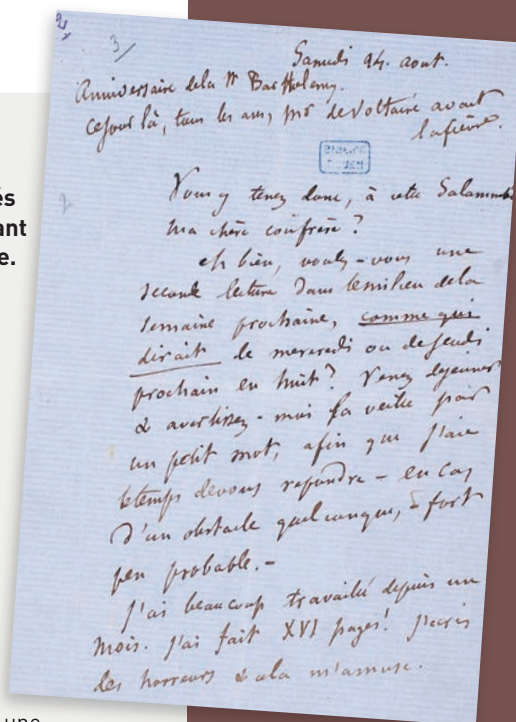 és
ant
e.
une
2
3/
2
Samedi 24. aout.
Anniversaire dela St Barthelemy.
cejour là, tous les ans, mr devoltaire avait
lafièvre.
Vous y tenez donc, à cette Salammbô
ma chère confrère ?
eh bien, voulez-vous une
seconde lecture dans lemilieu dela
semaine prochaine, comme qui
dirait le mercredi ou dejeudi
prochain en huit ? Venez dejeuner
& avertissez-moi la veille par
un petit mot, afin que j'aie
letemps devous repondre – en cas
d'un obstacle quelconque, fort
peu probable. –
j'ai beaucoup travaillé depuis un
mois. j'ai fait XVI pages! j'ecris
des horreurs & cela m'amuse.